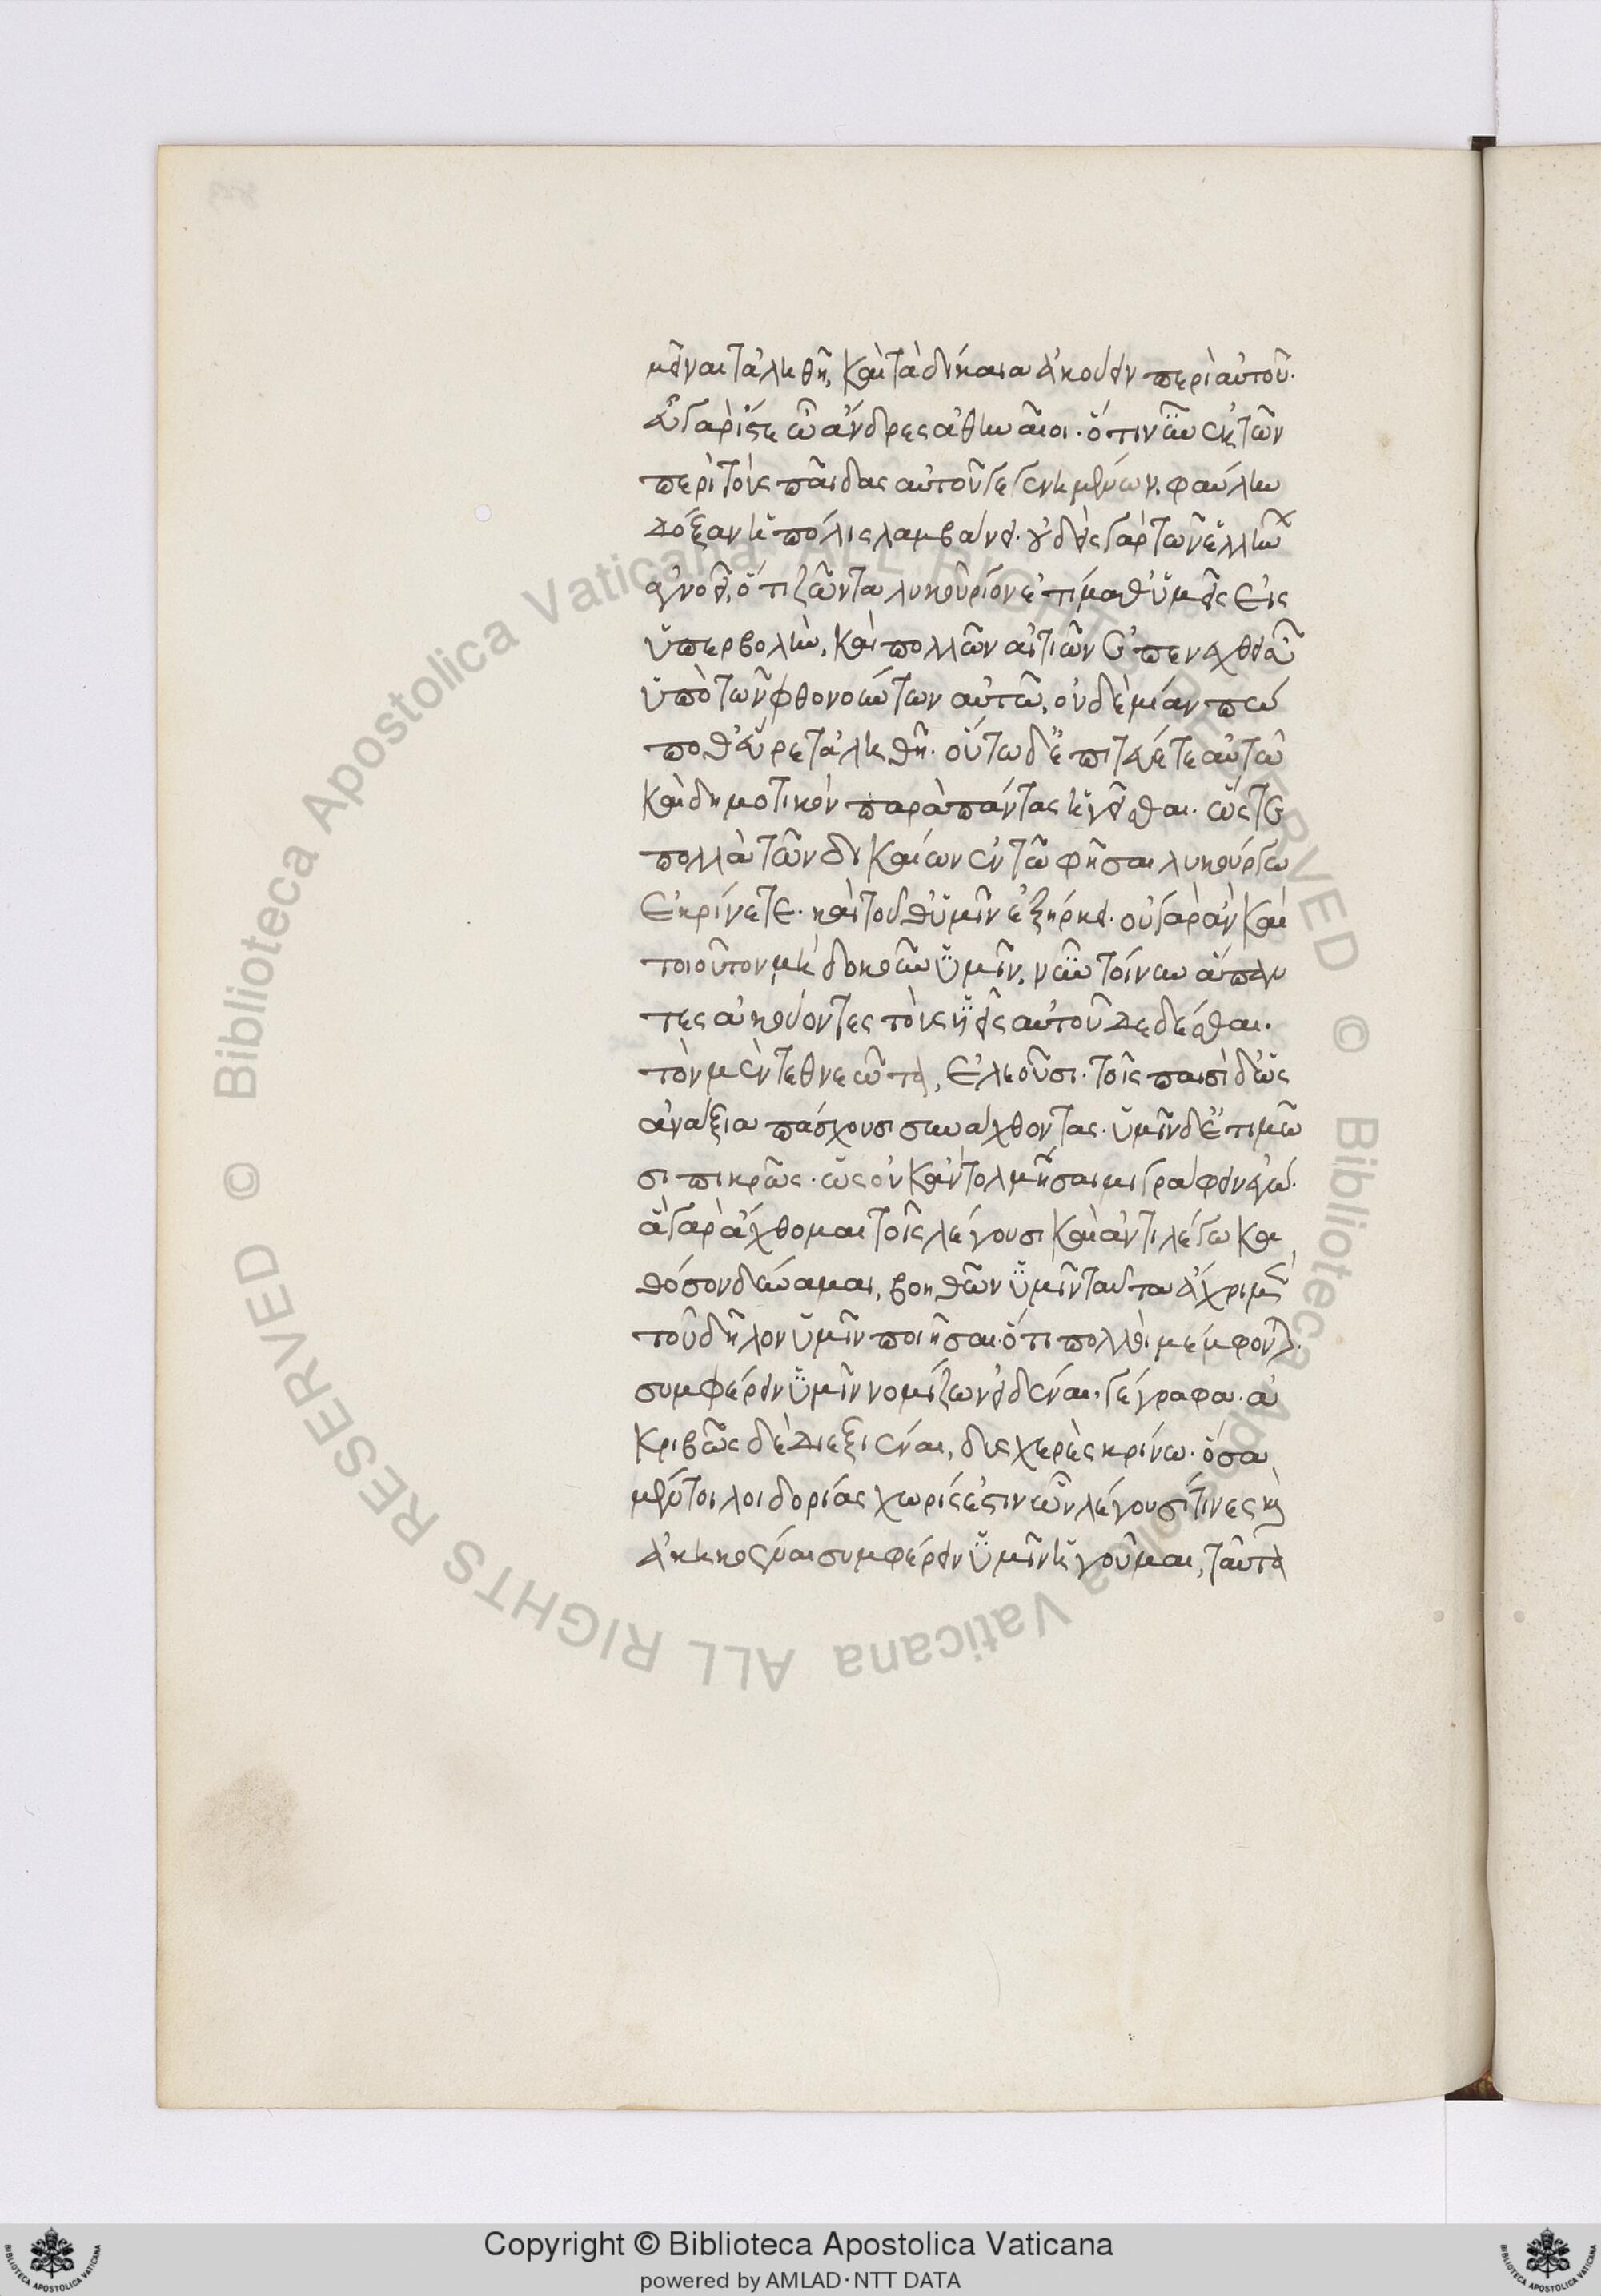 μεῖναι τἀληθῆ, καὶ τὰ δίκαια ἀκούειν περὶ αὐτοῦ·
εὖ γὰρ ἴστε ὦ ἄνδρες ἀθηναῖοι· ὅτι νῦν ἐκ τῶν
περὶ τοὺς παῖδας αὐτοῦ γεγενημένων, φαύλην
δόξαν ἡ πόλις λαμβάνει· οὐδεὶς γὰρ τῶν ἑλλήνων
ἀγνοεῖ, ὅτι ζῶντα λυκοῦργον ἐτιμᾶθ᾽ ὑμεῖς εἰς
ὑπερβολὴν, καὶ πολλῶν αἰτιῶν ἐπενεχθεισῶν
ὑπὸ τῶν φθονούντων αὐτῶ, οὐδεμίαν πώ
ποθ᾽ εὕρετ᾽ ἀληθῆ· οὕτω δ᾽ ἐπιστεύετε αὐτῶ
καὶ δημοτικὸν παρὰ πάντας ἡγεῖσθαι· ὥστε
πολλὰ τῶν δικαίων ἐν τῶ φῆσαι λυκοῦργον
ἐκρίνετε· καὶ τοῦθ᾽ ὑμῖν ἐξήρκει· οὐ γὰρ ἂν καὶ
τοιοῦτον μὴ δοκοῦν ὑμῖν, νῦν τοίνυν ἅπαν
τες ἀκούοντες τοὺς υἱεῖς αὐτοῦ δεδέσθαι·
τὸν μὲν τεθνεῶτα, ἐλεοῦσι· τοῖς παισὶ δ᾽ ὡς
ἀνάξια πάσχουσι συνάχθονται· ὑμῖν δ᾽ ἐπιτιμῶ
σι πικρῶς· ὡς οὐκ ἂν τολμήσαιμι γράφειν ἐγώ·
ἃ γὰρ ἄχθομαι τοῖς λέγουσι καὶ ἀντιλέγω καὶ
θόσον δύναμαι, βοηθῶν ὑμῖν ταῦτα ἄχρι μὲν
τοῦ δῆλον ὑμῖν ποιῆσαι· ὅτι πολλοὶ μέμφονται
συμφέρειν ὑμῖν νομίζων εἰδέναι, γέγραφα· ἀ
κριβῶς δὲ διεξιέναι, δυσχερὲς κρίνω· ὅσα
μέντοι λοιδορίας χωρίς ἐστιν ὧν λέγουσί τινες καὶ
ἀκηκοέναι συμφέρειν ὑμῖν ἡγοῦμαι, ταῦτα
Copyright © Biblioteca Apostolica Vaticana
powered by AMLAD·NTT DATA